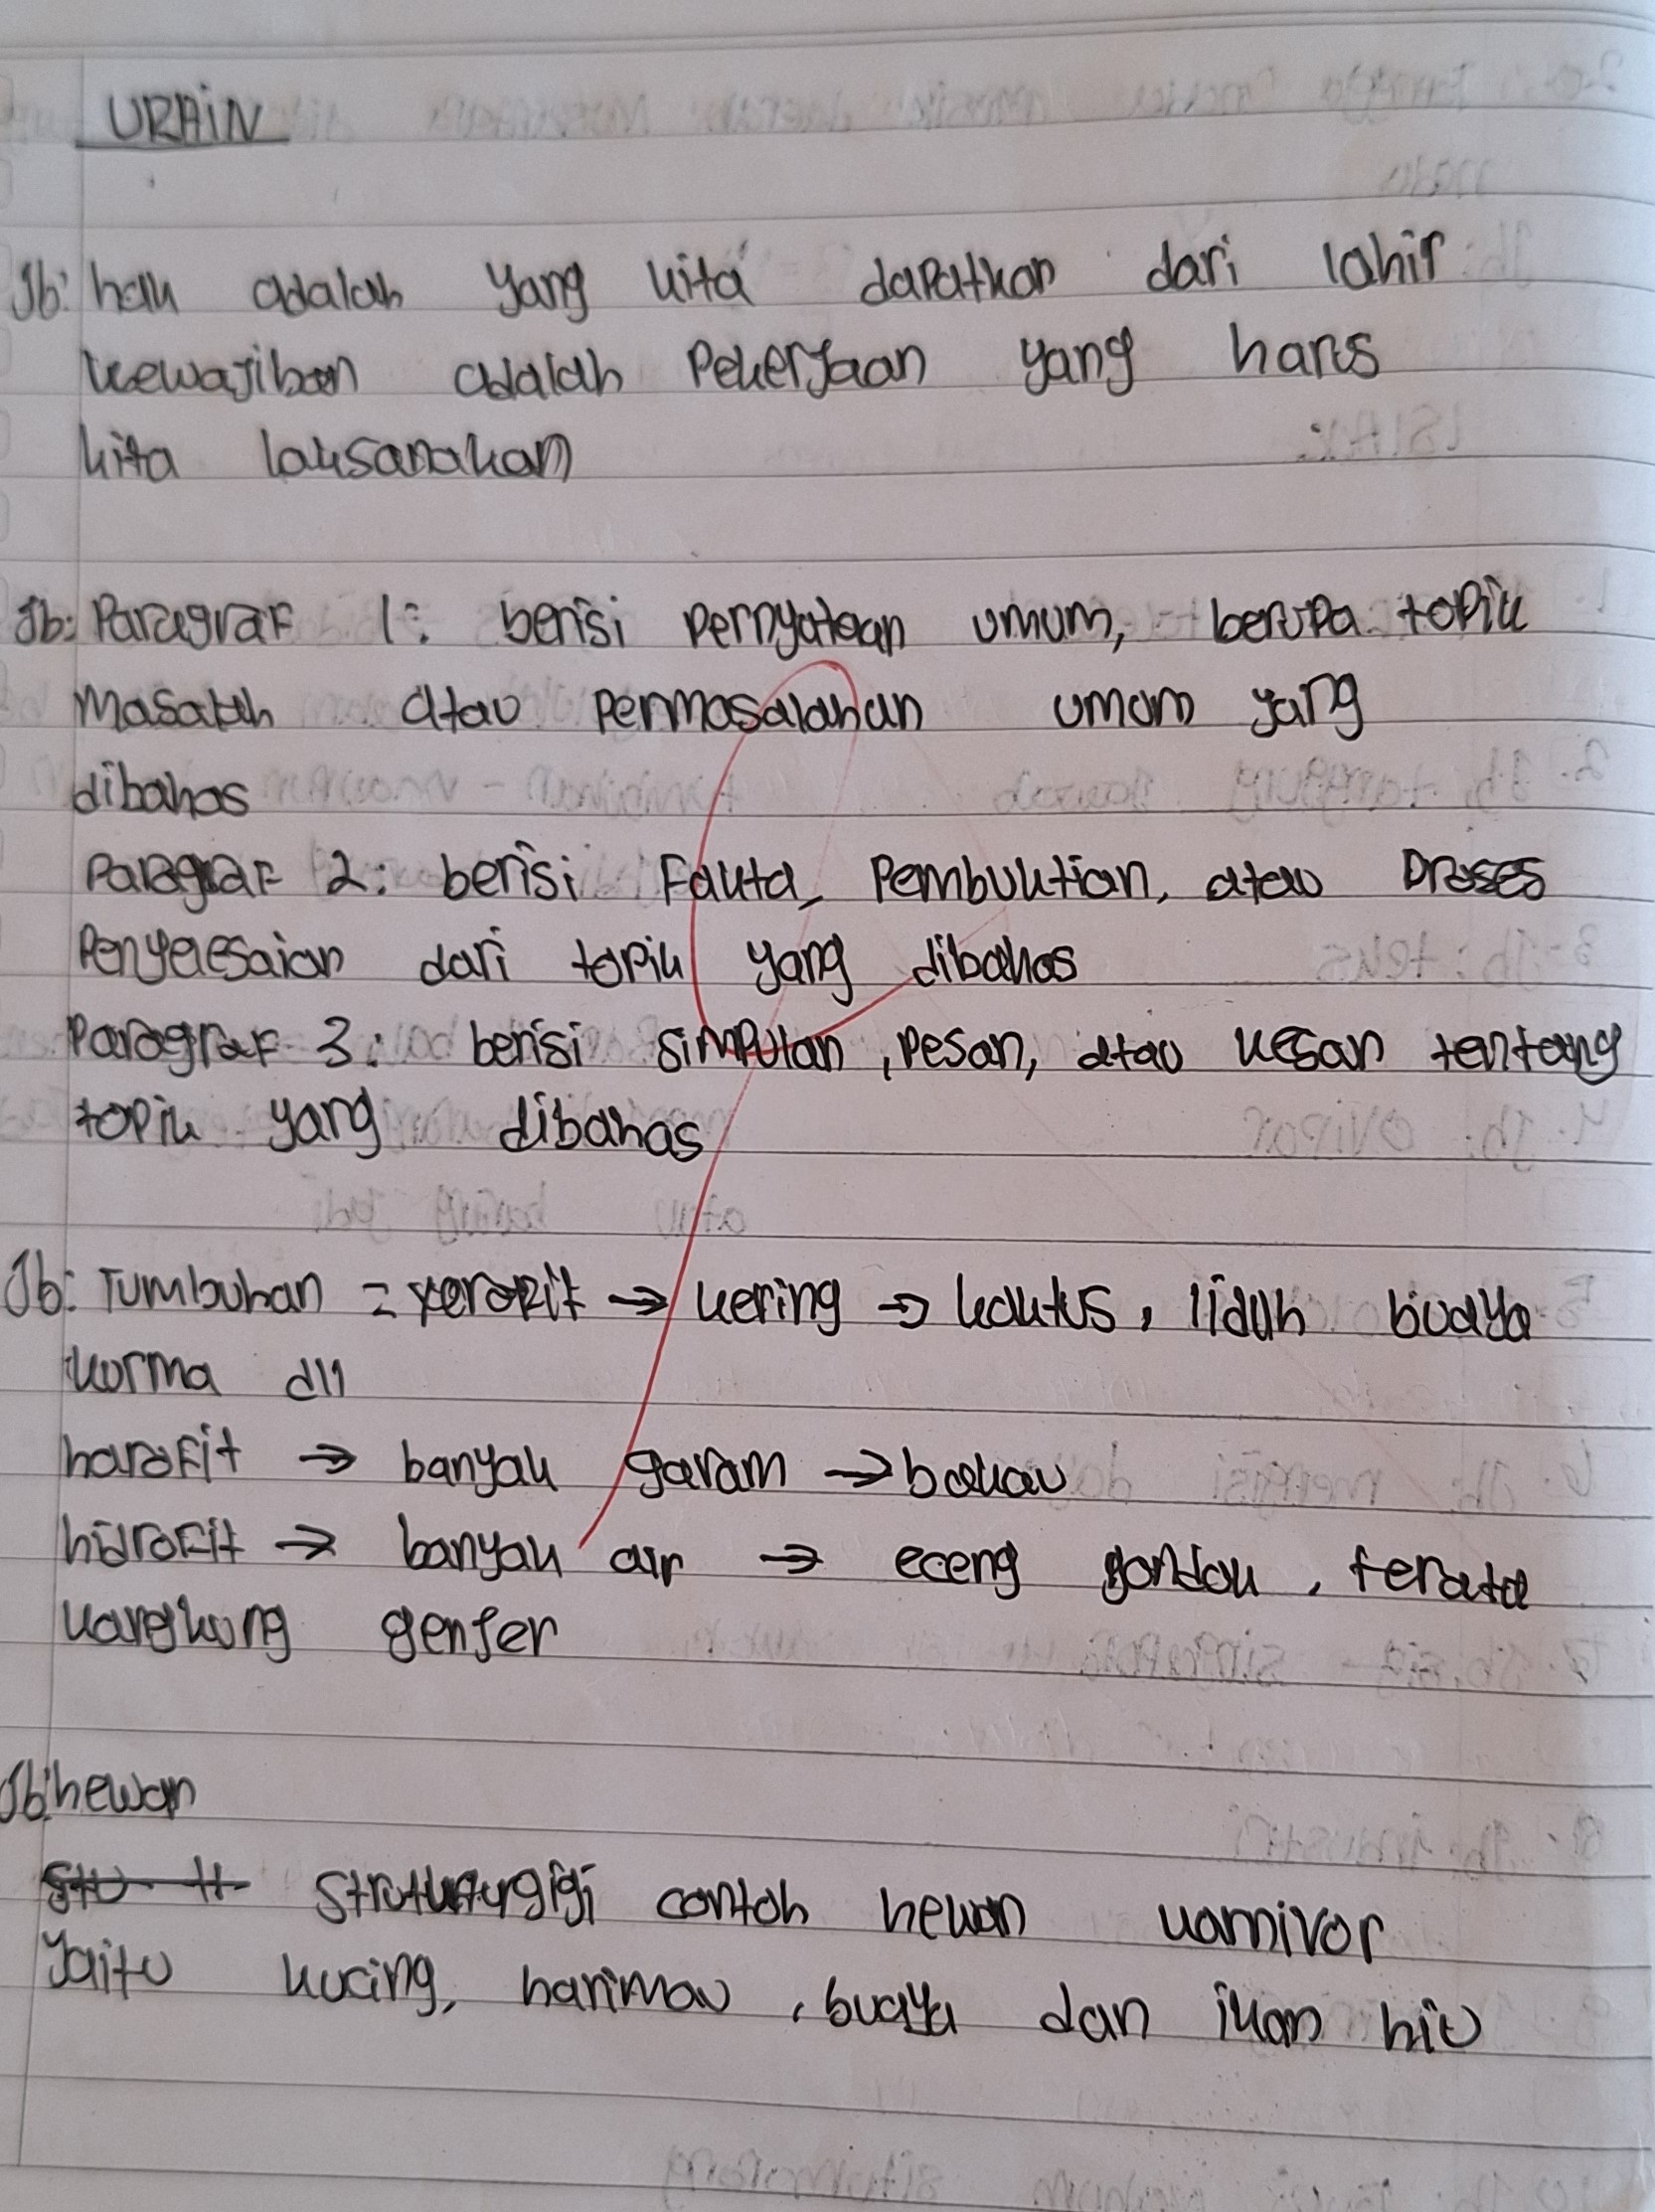 URAIN
Jb: hak adalah yang kita dapatkan dari lahir
kewajiban adalah Pekerjaan yang harus
kita laksanakan
Jb: Paragraf 1: berisi pernyataan umum, berupa topik
masalah atau permasalahan umum yang
dibahas
Paragraf 2: berisi Fakta, Pembuktian, atau Proses
Penyelesaian dari topik yang dibahas
Paragraf 3: berisi simpulan, pesan, atau kesan tentang
topik yang dibahas
Jb: Tumbuhan = xerofit → kering → kaktus, lidah buaya
korma dll
harofit → banyak garam → bakau
hidrofit → banyak air → eceng gondok, terata
kangkung genjer
Jb: hewan
Struktur gigi contoh hewan karnivor
Yaitu kucing, harimau, buaya dan ikan hiu